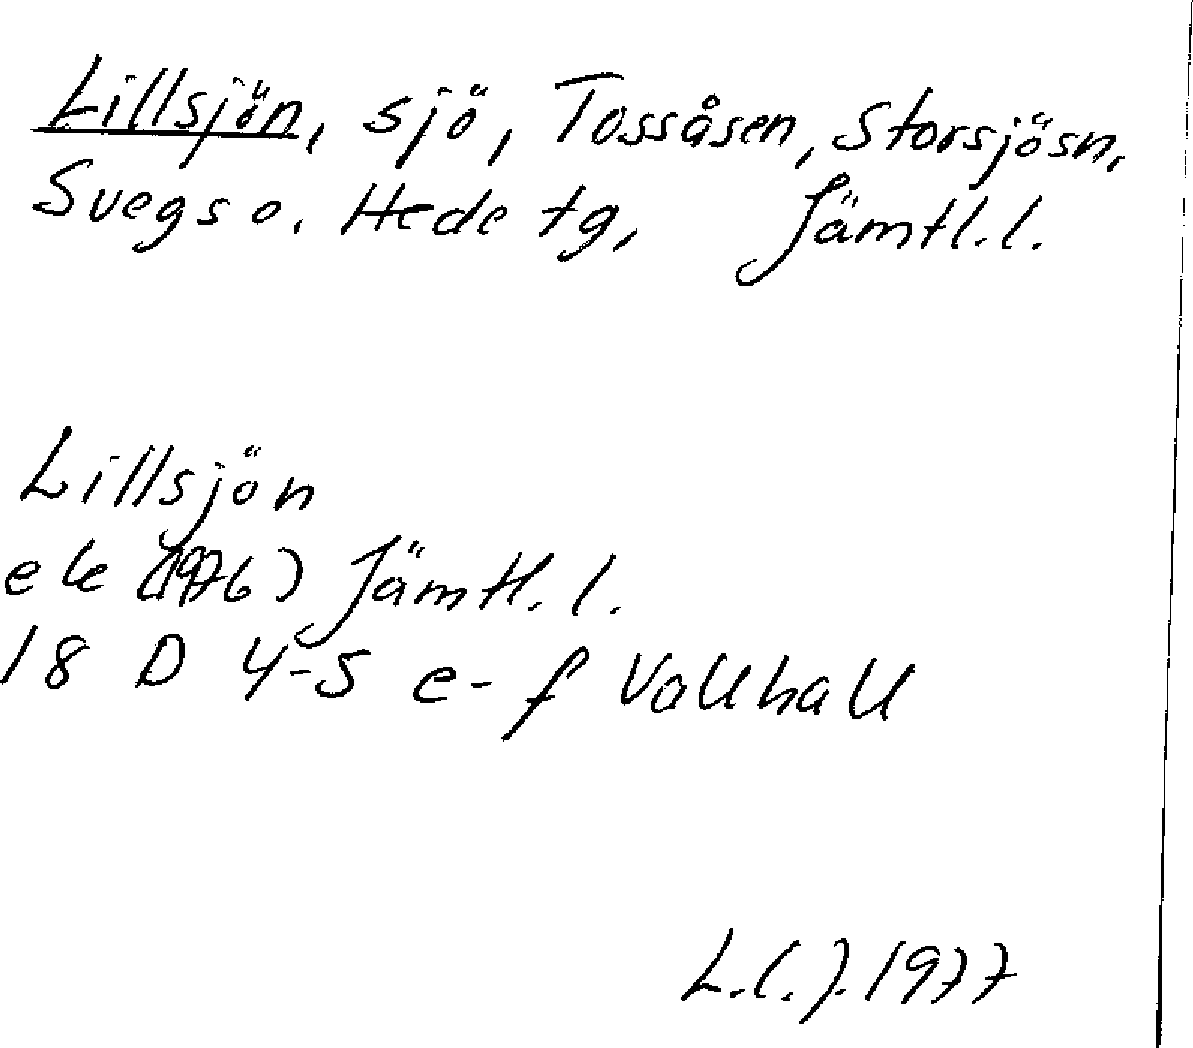 Lillsjön, sjö, Tossåsen, Storsjösn,
Svegs o. Hede tg, Jämtl.l.
Lillsjön
ek (1976) Jämtl. l.
18 D 4-5 e-f Vallhall
L.(.). 1977